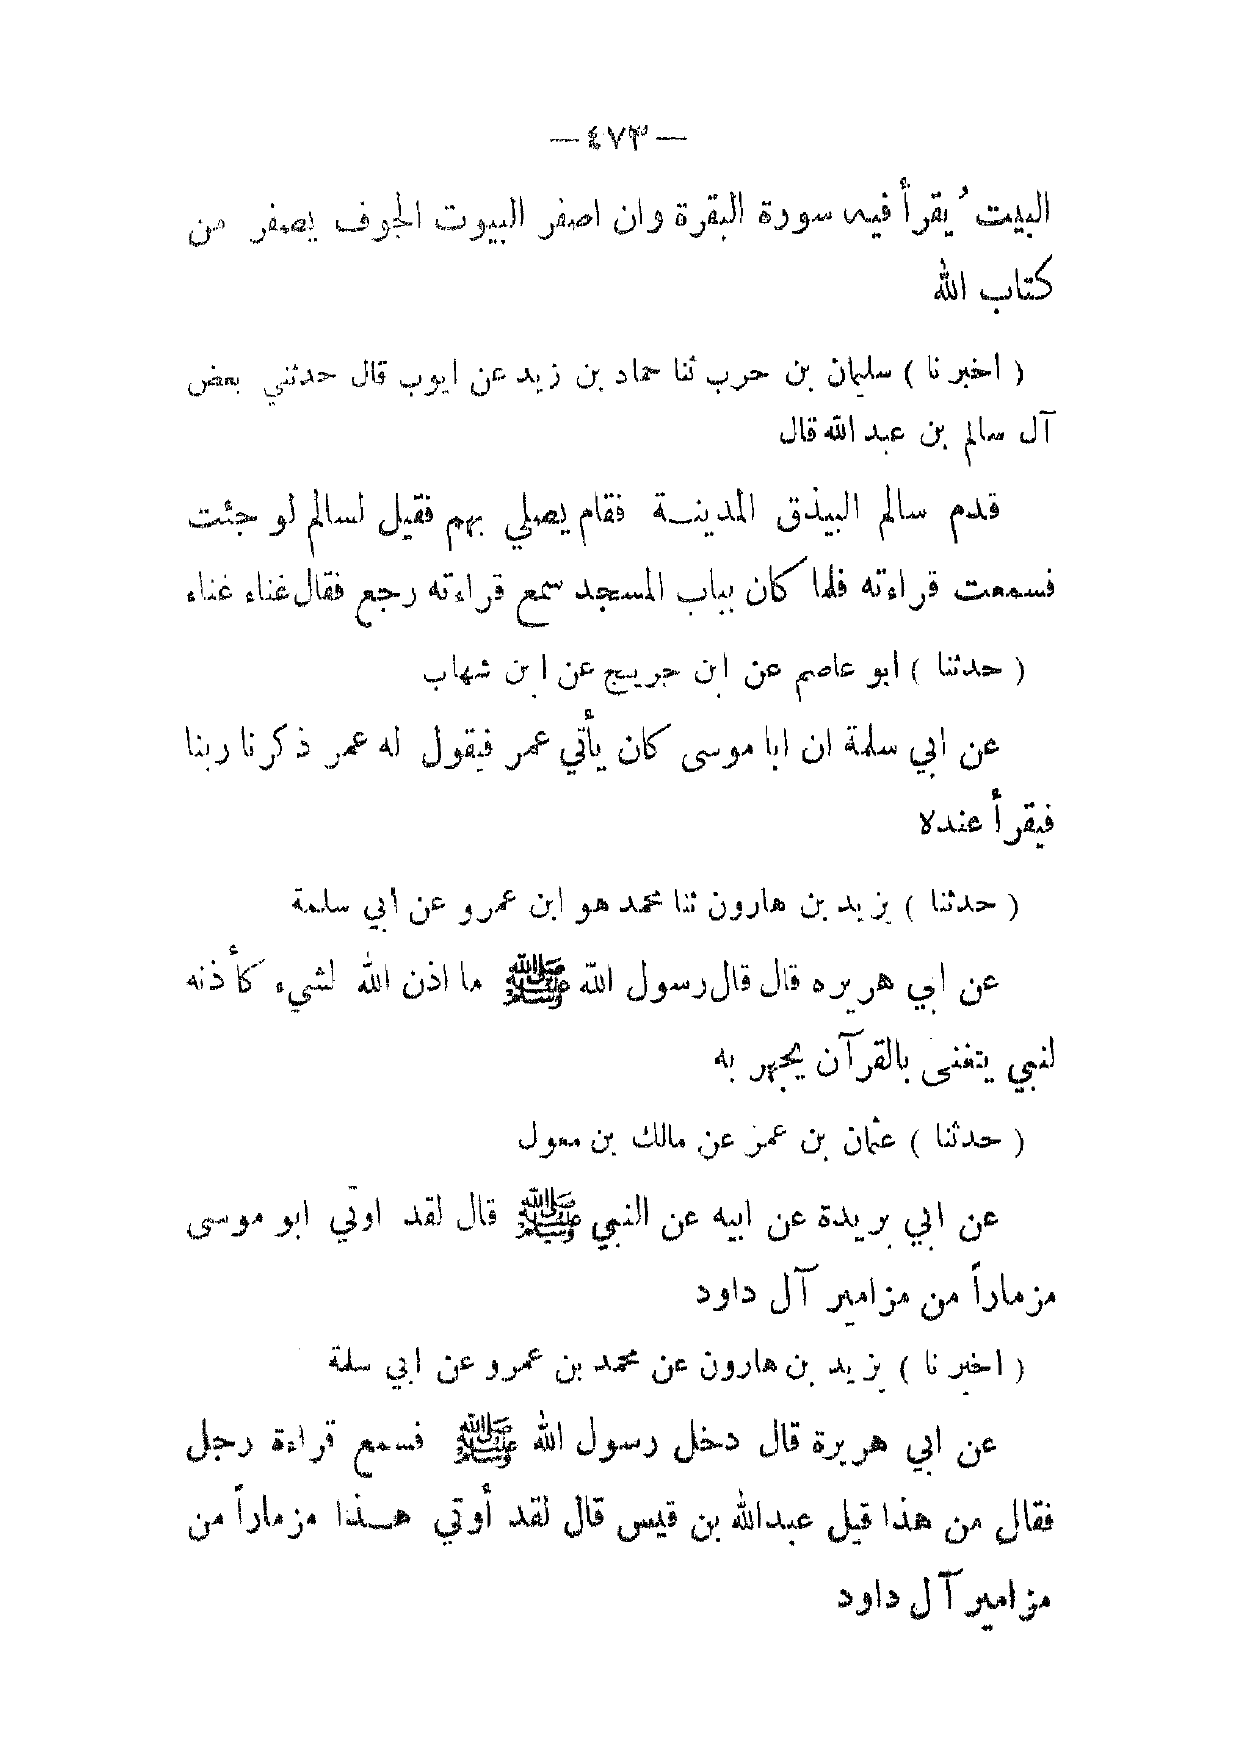 —٤٧٣—
البيت ُيقرأ فيه سورة البقرة وان اصفر البيوت الجوف يصفر من
كتاب الله
( اخبرنا ) سليمان بن حرب ثنا حماد بن زيد عن ايوب قال حدثني بعض
آل سالم بن عبد الله قال
قدم سالم البيذق المدينة فقام يصلي بهم فقيل لسالم لو جئت
فسمعت قراءته فلما كان بباب المسجد سمع قراءته رجع فقال غناء غناء
( حدثنا ) ابو عاصم عن ابن جريج عن ابن شهاب
عن ابي سلمة ان ابا موسى كان يأتي عمر فيقول له عمر ذكرنا ربنا
فيقرأ عنده
( حدثنا ) يزيد بن هارون ثنا محمد هو ابن عمرو عن ابي سلمة
عن ابي هريره قال قال رسول الله ﷺ ما اذن الله لشيء كأذنه
لنبي يتغنى بالقرآن يجهر به
( حدثنا ) عثمان بن عمر عن مالك بن معول
عن ابي بريدة عن ابيه عن النبي ﷺ قال لقد اوتي ابو موسى
مزماراً من مزامير آل داود
( اخبرنا ) يزيد بن هارون عن محمد بن عمرو عن ابي سلمة
عن ابي هريرة قال دخل رسول الله ﷺ فسمع قراءة رجل
فقال من هذا قيل عبدالله بن قيس قال لقد أوتي هذا مزماراً من
مزامير آل داود